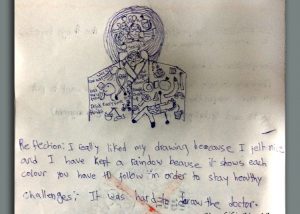 Reflection: I really liked my drawing because I felt nice
and I have kept a rainbow because it shows each
colour you have to follow in order to stay healthy
challenges: It was hard to draw the doctor.